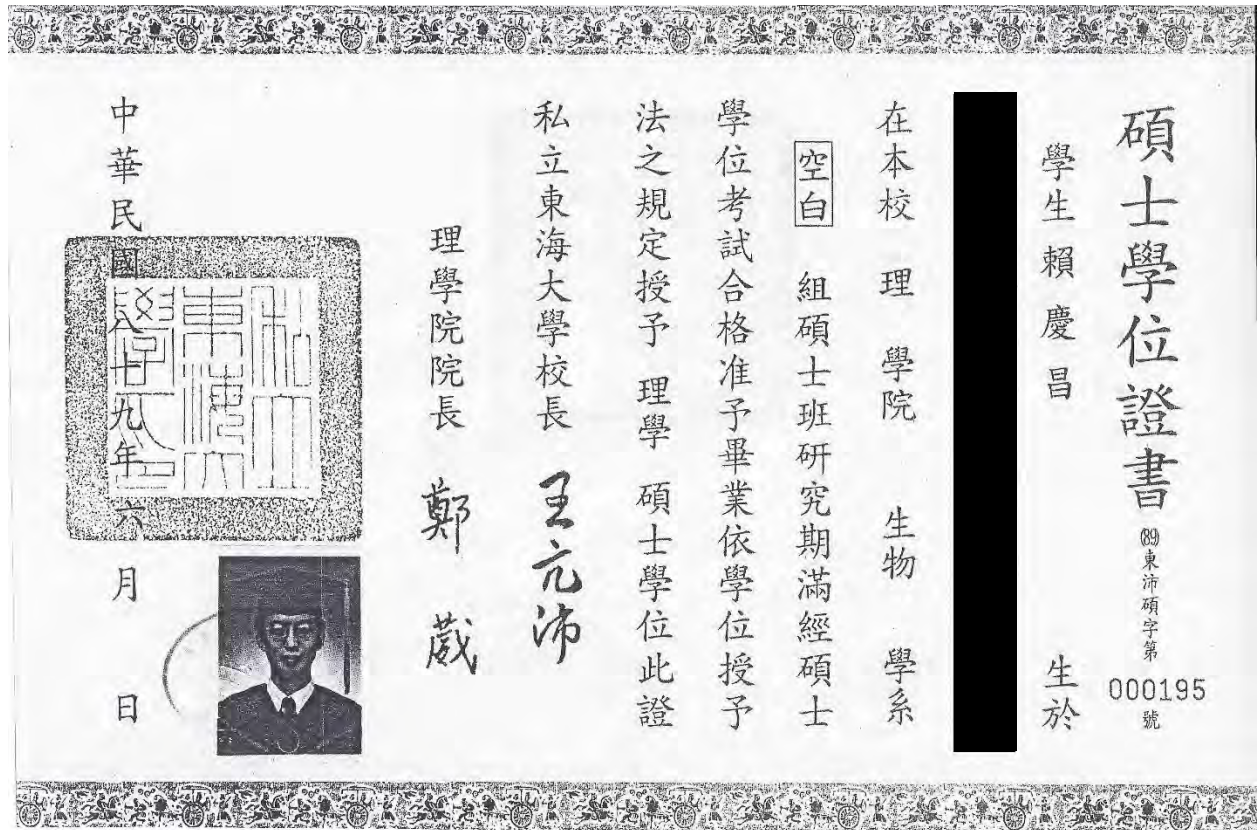 碩士學位證書 (89)東沛碩字第000195號
學生賴慶昌 生於
在本校 理 學院 生物 學系
空白 組碩士班研究期滿經碩士
學位考試合格准予畢業依學位授予
法之規定授予 理學 碩士學位此證
私立東海大學校長 王亢沛
理學院院長 鄭葳
中華民國八十九年六月 日
私立
東海大
學印